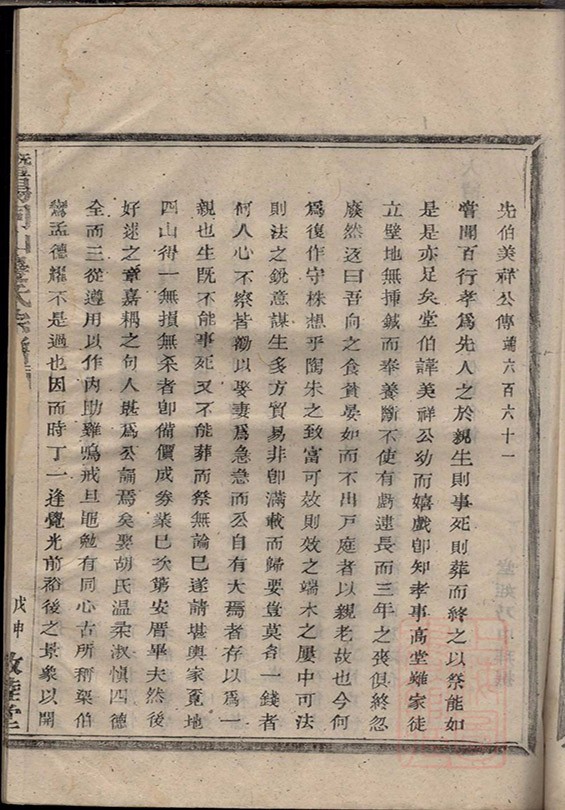 先伯美祥公傳端六百六十一
嘗聞百行孝爲先人之於親生則事死則葬而終之以祭能如
是是亦足矣堂伯諱美祥公幼而嬉戲卽知孝事高堂雖家徒
立壁地無揷鍼而奉養斷不使有虧逮長而三年之喪俱終忽
廢然返曰吾向之食貧晏如而不出戸庭者以親老故也今何
爲復作守株想乎陶朱之致富可效則效之端木之屢中可法
則法之銳意謀生多方貿易非卽滿載而歸要豈莫名一錢者
何人心不察皆勸以娶妻爲急急而公自有大焉者存以爲一
親也生旣不能事死又不能葬而祭無論已遂請堪輿家覓地
四山得一無損無杀者卽備價成券業已埃第安厝畢夫然後
好逑之章嘉耦之句人堪爲公誦焉矣娶胡氏温柔淑慎四德
全而三從遵用以作內助雞鳴戒旦黽勉有同心古所稱梁伯
鸞孟德耀不是過也因而時丁一逢覺光前裕後之景象以開
戊申